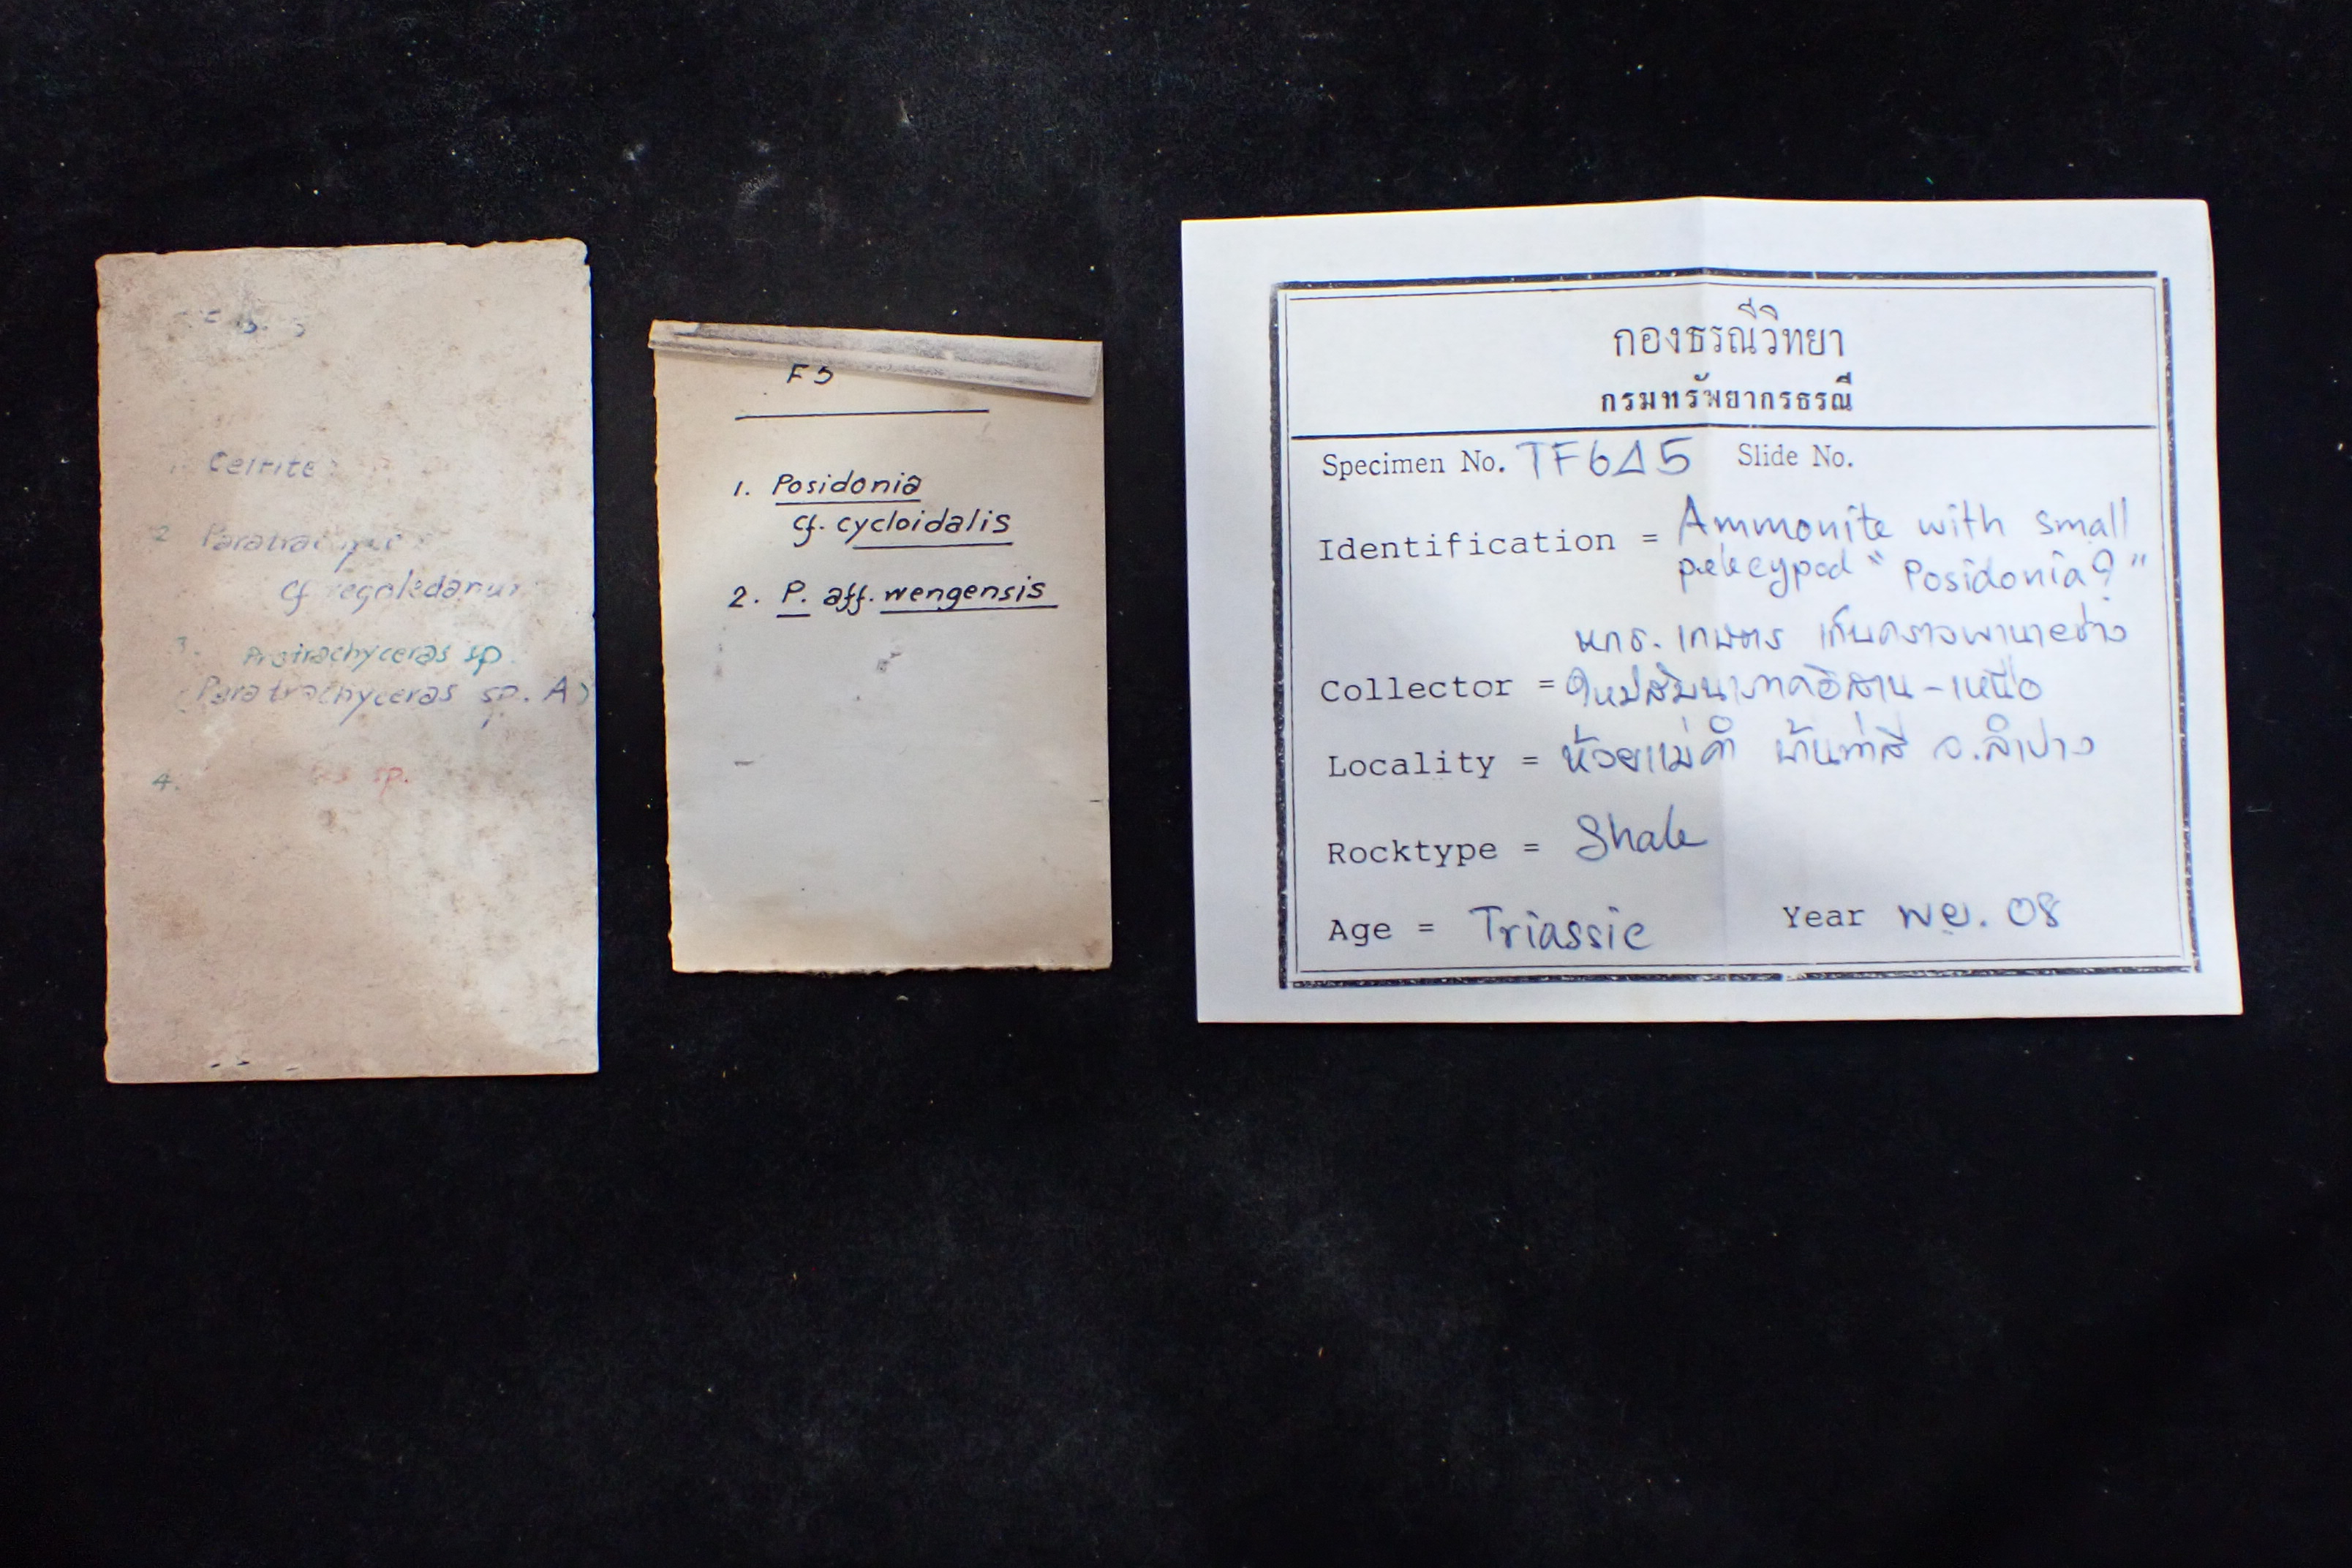 Celtite
2 Paratrachyceras
cf regoledanus
3. Protrachyceras sp.
(Paratrachyceras sp. A)
4. sp.
F5
1. Posidonia
cf. cycloidalis
2. P. aff. wengensis
กองธรณีวิทยา
กรมทรัพยากรธรณี
Specimen No. TF6Δ5 Slide No.
Identification = Ammonite with small
pelecypod "Posidonia?"
เก็บคราวพานาย่าง
Collector = ใหม่สัมนาภาคอิสาน-เหนือ
Locality = ห้วยแม่คำ บ้านท่าสี จ.ลำปาง
Rocktype = Shale
Age = Triassic Year พย. 08